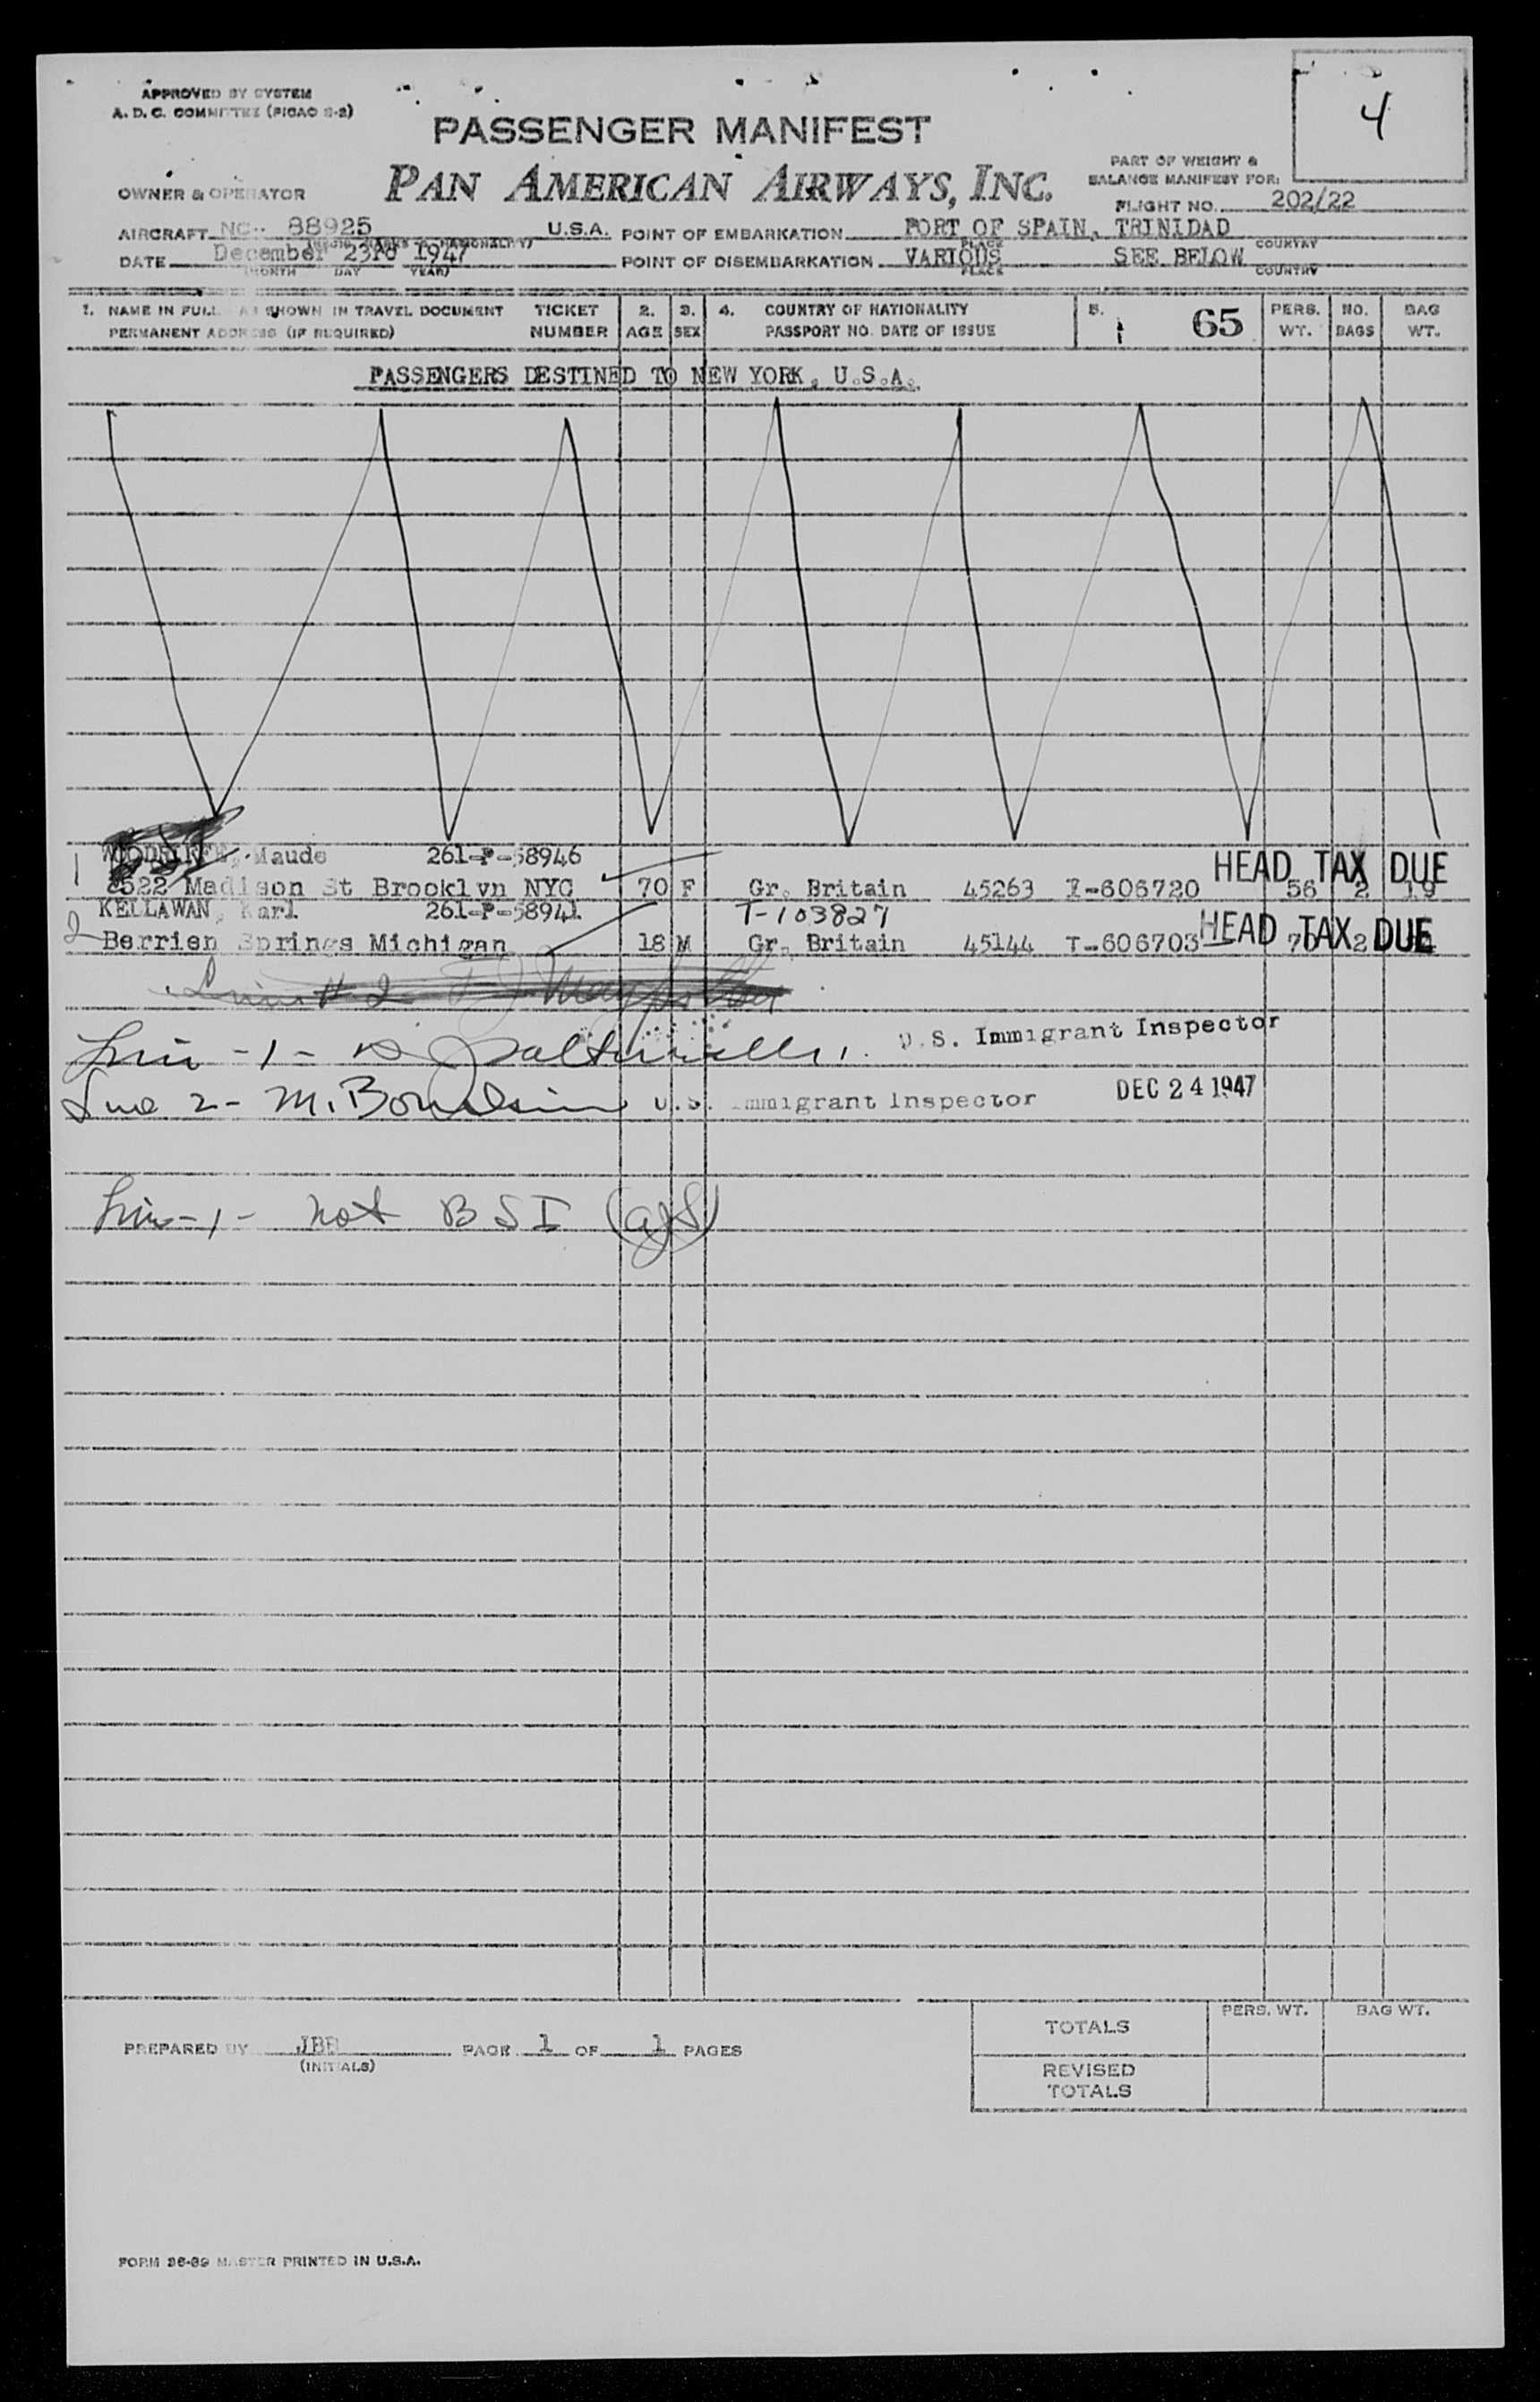 APPROVED BY SYSTEM
A. D. C. COMMITTEE (PICAO S-2)
4
PASSENGER MANIFEST
PAN AMERICAN AIRWAYS, INC.
OWNER & OPERATOR
PART OF WEIGHT &
BALANCE MANIFEST FOR:
FLIGHT NO. 202/22
AIRCRAFT NC-- 88925 U.S.A. POINT OF EMBARKATION PORT OF SPAIN, TRINIDAD
PLACE COUNTRY
DATE December 23rd 1947 POINT OF DISEMBARKATION VARIOUS SEE BELOW
(MONTH DAY YEAR) PLACE COUNTRY
1. NAME IN FULL AS SHOWN IN TRAVEL DOCUMENT TICKET 2. 3. 4. COUNTRY OF NATIONALITY 5. 65 PERS. NO. BAG
PERMANENT ADDRESS (IF REQUIRED) NUMBER AGE SEX PASSPORT NO. DATE OF ISSUE WT. BAGS WT.
PASSENGERS DESTINED TO NEW YORK, U.S.A.
1 Maude 261-P-58946 HEAD TAX DUE
Madison St Brooklyn NYC 70 F Gr. Britain 45263 I-606720 56 2 19
KELLAWAN, Karl 261-P-58941 T-103827
2 Berrien Springs Michigan 18 M Gr. Britain 45144 T-606703 HEAD TAX DUE 2
Line -1- U.S. Immigrant Inspector
Line 2- M. U.S. Immigrant Inspector DEC 24 1947
Line -1- not BSI
TOTALS PERS. WT. BAG WT.
PREPARED BY PAGE 1 OF 1 PAGES
(INITIALS)
REVISED
TOTALS
FORM 36-89 MASTER PRINTED IN U.S.A.